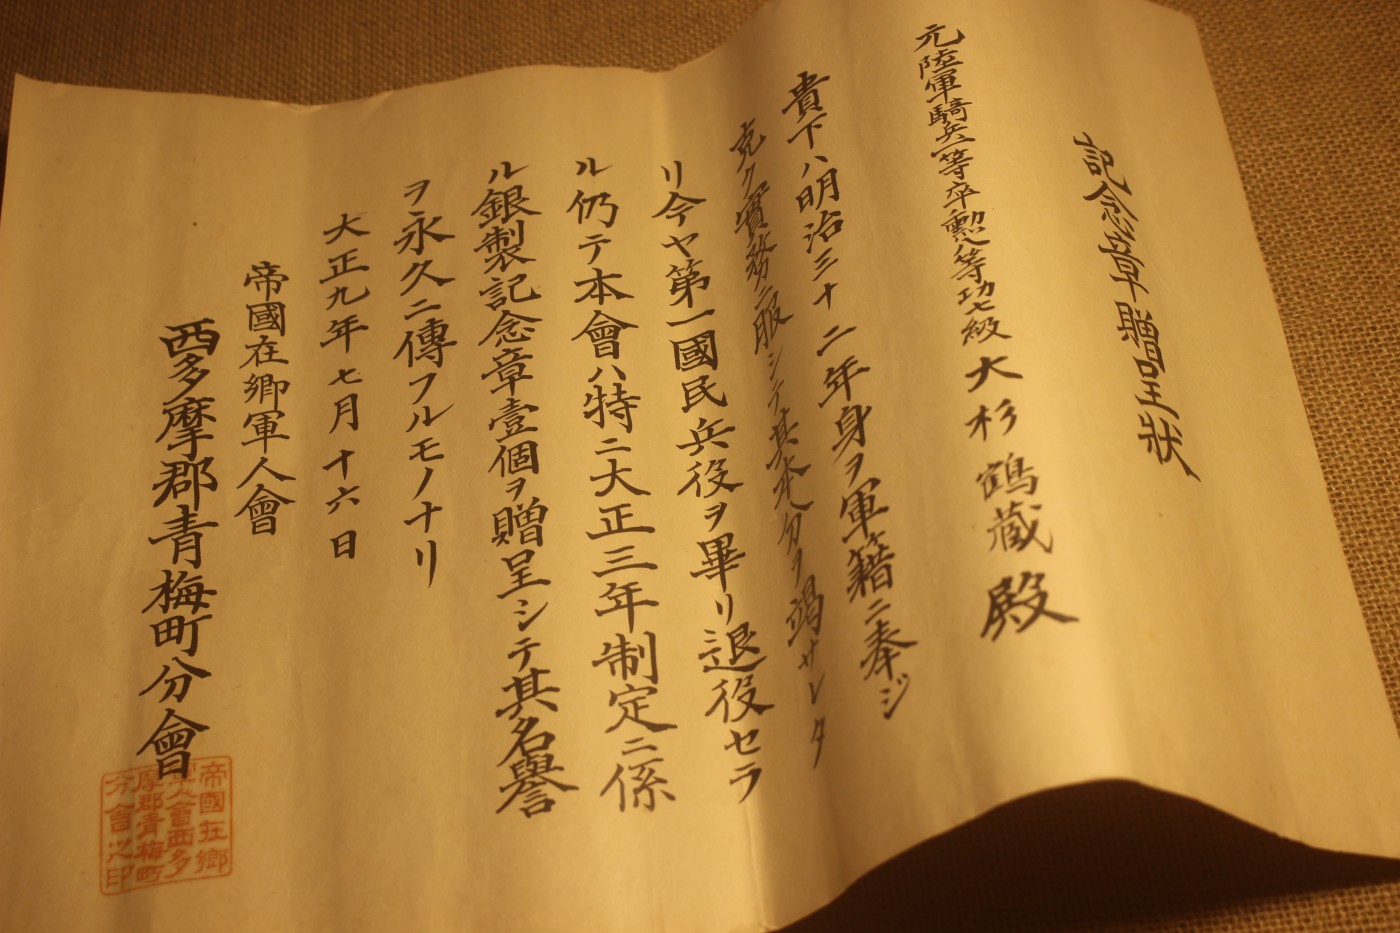 記念章贈呈状
元陸軍騎兵一等卒勲八等功七級大杉鶴蔵殿
貴下ハ明治三十二年身ヲ軍籍ニ奉ジ
克ク實務ニ服シテ其本分ヲ竭サレタ
リ今ヤ第一國民兵役ヲ畢リ退役セラ
ル仍テ本會ハ特ニ大正三年制定ニ係
ル銀製記念章壹個ヲ贈呈シテ其名譽
ヲ永久ニ傳フルモノナリ
大正九年七月十六日
帝國在郷軍人會
西多摩郡青梅町分會
帝國在郷
軍人會西多
摩郡青梅町
分會之印